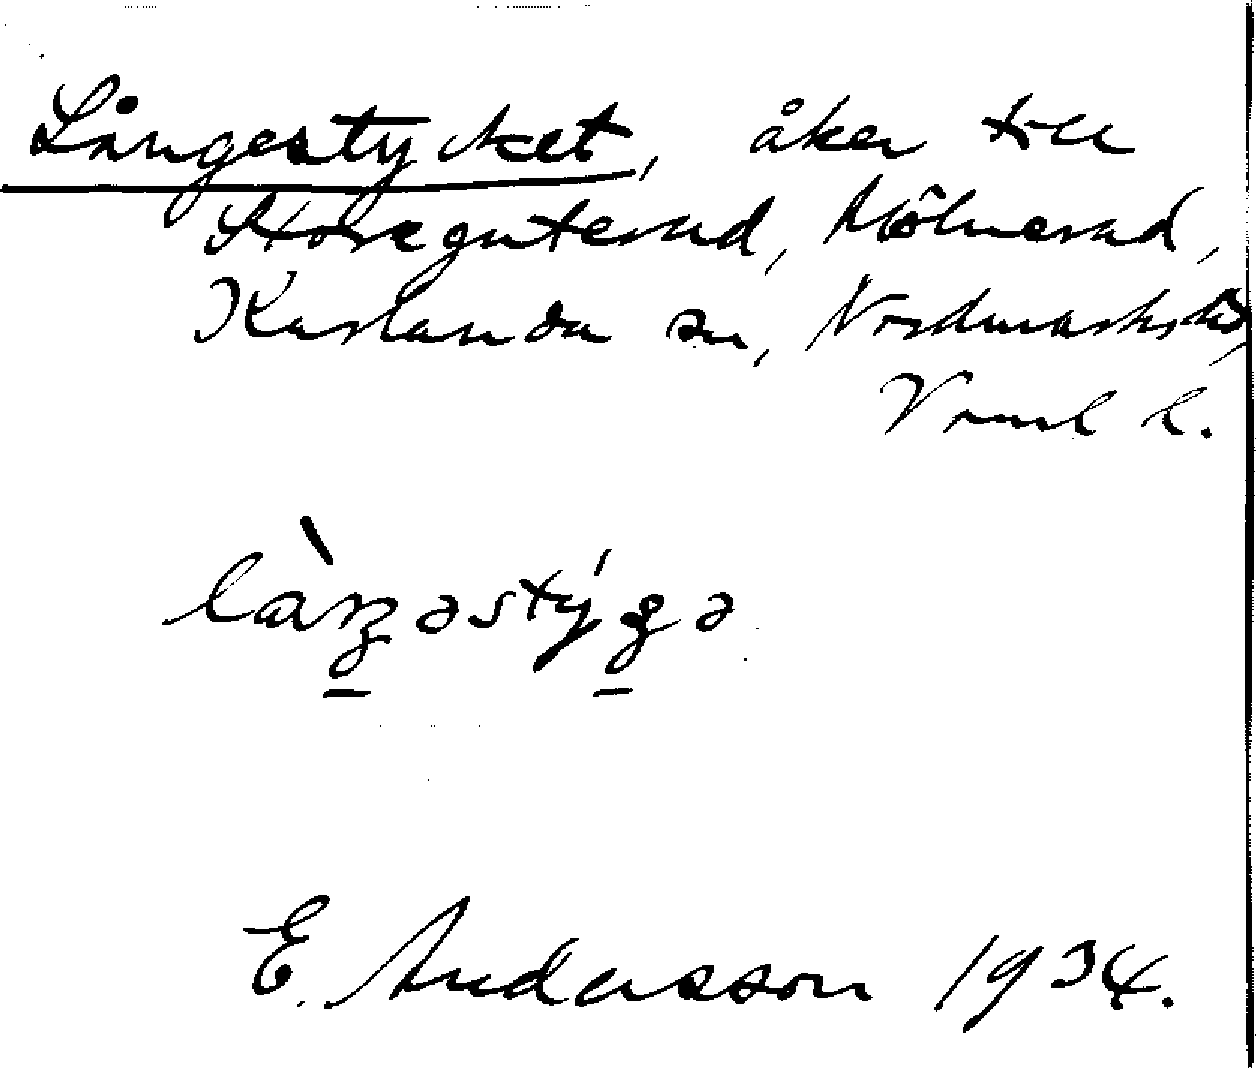 Långestycket, åker till
Storeguterud, Mölnerud,
Karlanda sn, Nordmarks hd,
Vrml l.
E. Andersson 1934.